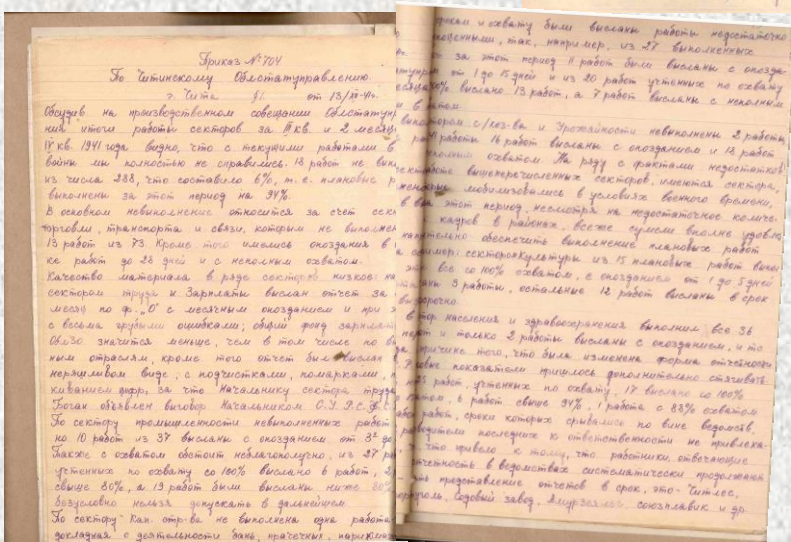 Приказ №704
По Читинскому Облстатуправлению
г. Чита §1 от 13/XII-41г.
Обсудив на производственном совещании Облстатупр
ния итоги работы секторов за III кв. и 2 месяц
IV кв. 1941 года видно, что с текущими работами в
войны мы полностью не справились. 18 работ не вып
из числа 288, что составило 6%, т.е. плановые р
выполнены за этот период на 94%.
В основном невыполнение относится за счет сект
торговли, транспорта и связи, которым не выполнен
13 работ из 73. Кроме того имелись опоздания в
ке работ до 28 дней и с неполным охватом.
Качество материала в ряде секторов низкое: на
сектором труда и Зарплаты выслан отчет за
месяц по ф. "О" с месячным опозданием и при
с весьма грубыми ошибками; общий фонд зарплат
Облзо значится меньше, чем в том числе по
ным отраслям, кроме того отчет был выслан
неряшливом виде, с подчистками, помарками,
киванием цифр, за что Начальнику сектора труда
Боган объявлен выговор Начальником О.У. Р.С.Ф.С
По сектору промышленности невыполненных работ
но 10 работ из 37 высланы с опозданием от 3х до
Также с охватом обстоит неблагополучно, из 27 ра
учтенных по охвату со 100% выслано 6 работ, 2
свыше 80%, а 19 работ были высланы ниже 80%
безусловно нельзя допускать в дальнейшем.
По сектору Кап. стр-ва не выполнена одна работа
докладная о деятельности бань, прачечных, парикмах
срокам и охвату были высланы работы недостаточно
так, например, из 27 выполненных
за этот период 11 работ были высланы с опозда
от 1 до 15 дней и из 20 работ учтенных по охвату
выслано 13 работ, а 7 работ высланы с неполным
ватом.
с/хоз-ва и Урожайности невыполнены 2 работы,
работы 16 работ высланы с опозданием и 18 работ
неполным охватом. На ряду с фактами недостатков
вышеперечисленных секторов, имеются сектора,
мобилизовались в условиях военного времени,
этот период, несмотря на недостаточное количе-
кадров в районах, все же сумели вполне удовле
обеспечить выполнение плановых работ
сектор Культуры из 15 плановых работ выпол
все со 100% охватом, с опозданием от 1 до 5 дней
3 работы, остальные 12 работ высланы в срок
досрочно.
тор населения и здравоохранения выполнил все 36
и только 2 работы высланы с опозданием, и то
причине того, что была изменена форма отчетности
показатели пришлось дополнительно стягивать
работ, учтенных по охвату, 17 выслано со 100%
ватом, 6 работ свыше 94%, 1 работа с 88% охватом
работ, сроки которых срывались по вине ведомств,
последних к ответственности не привлека-
что привело к тому, что работники, отвечающие
отчетность в ведомствах систематически продолжают
представление отчетов в срок, это - Читлес,
Содовый завод, союзплавик и др